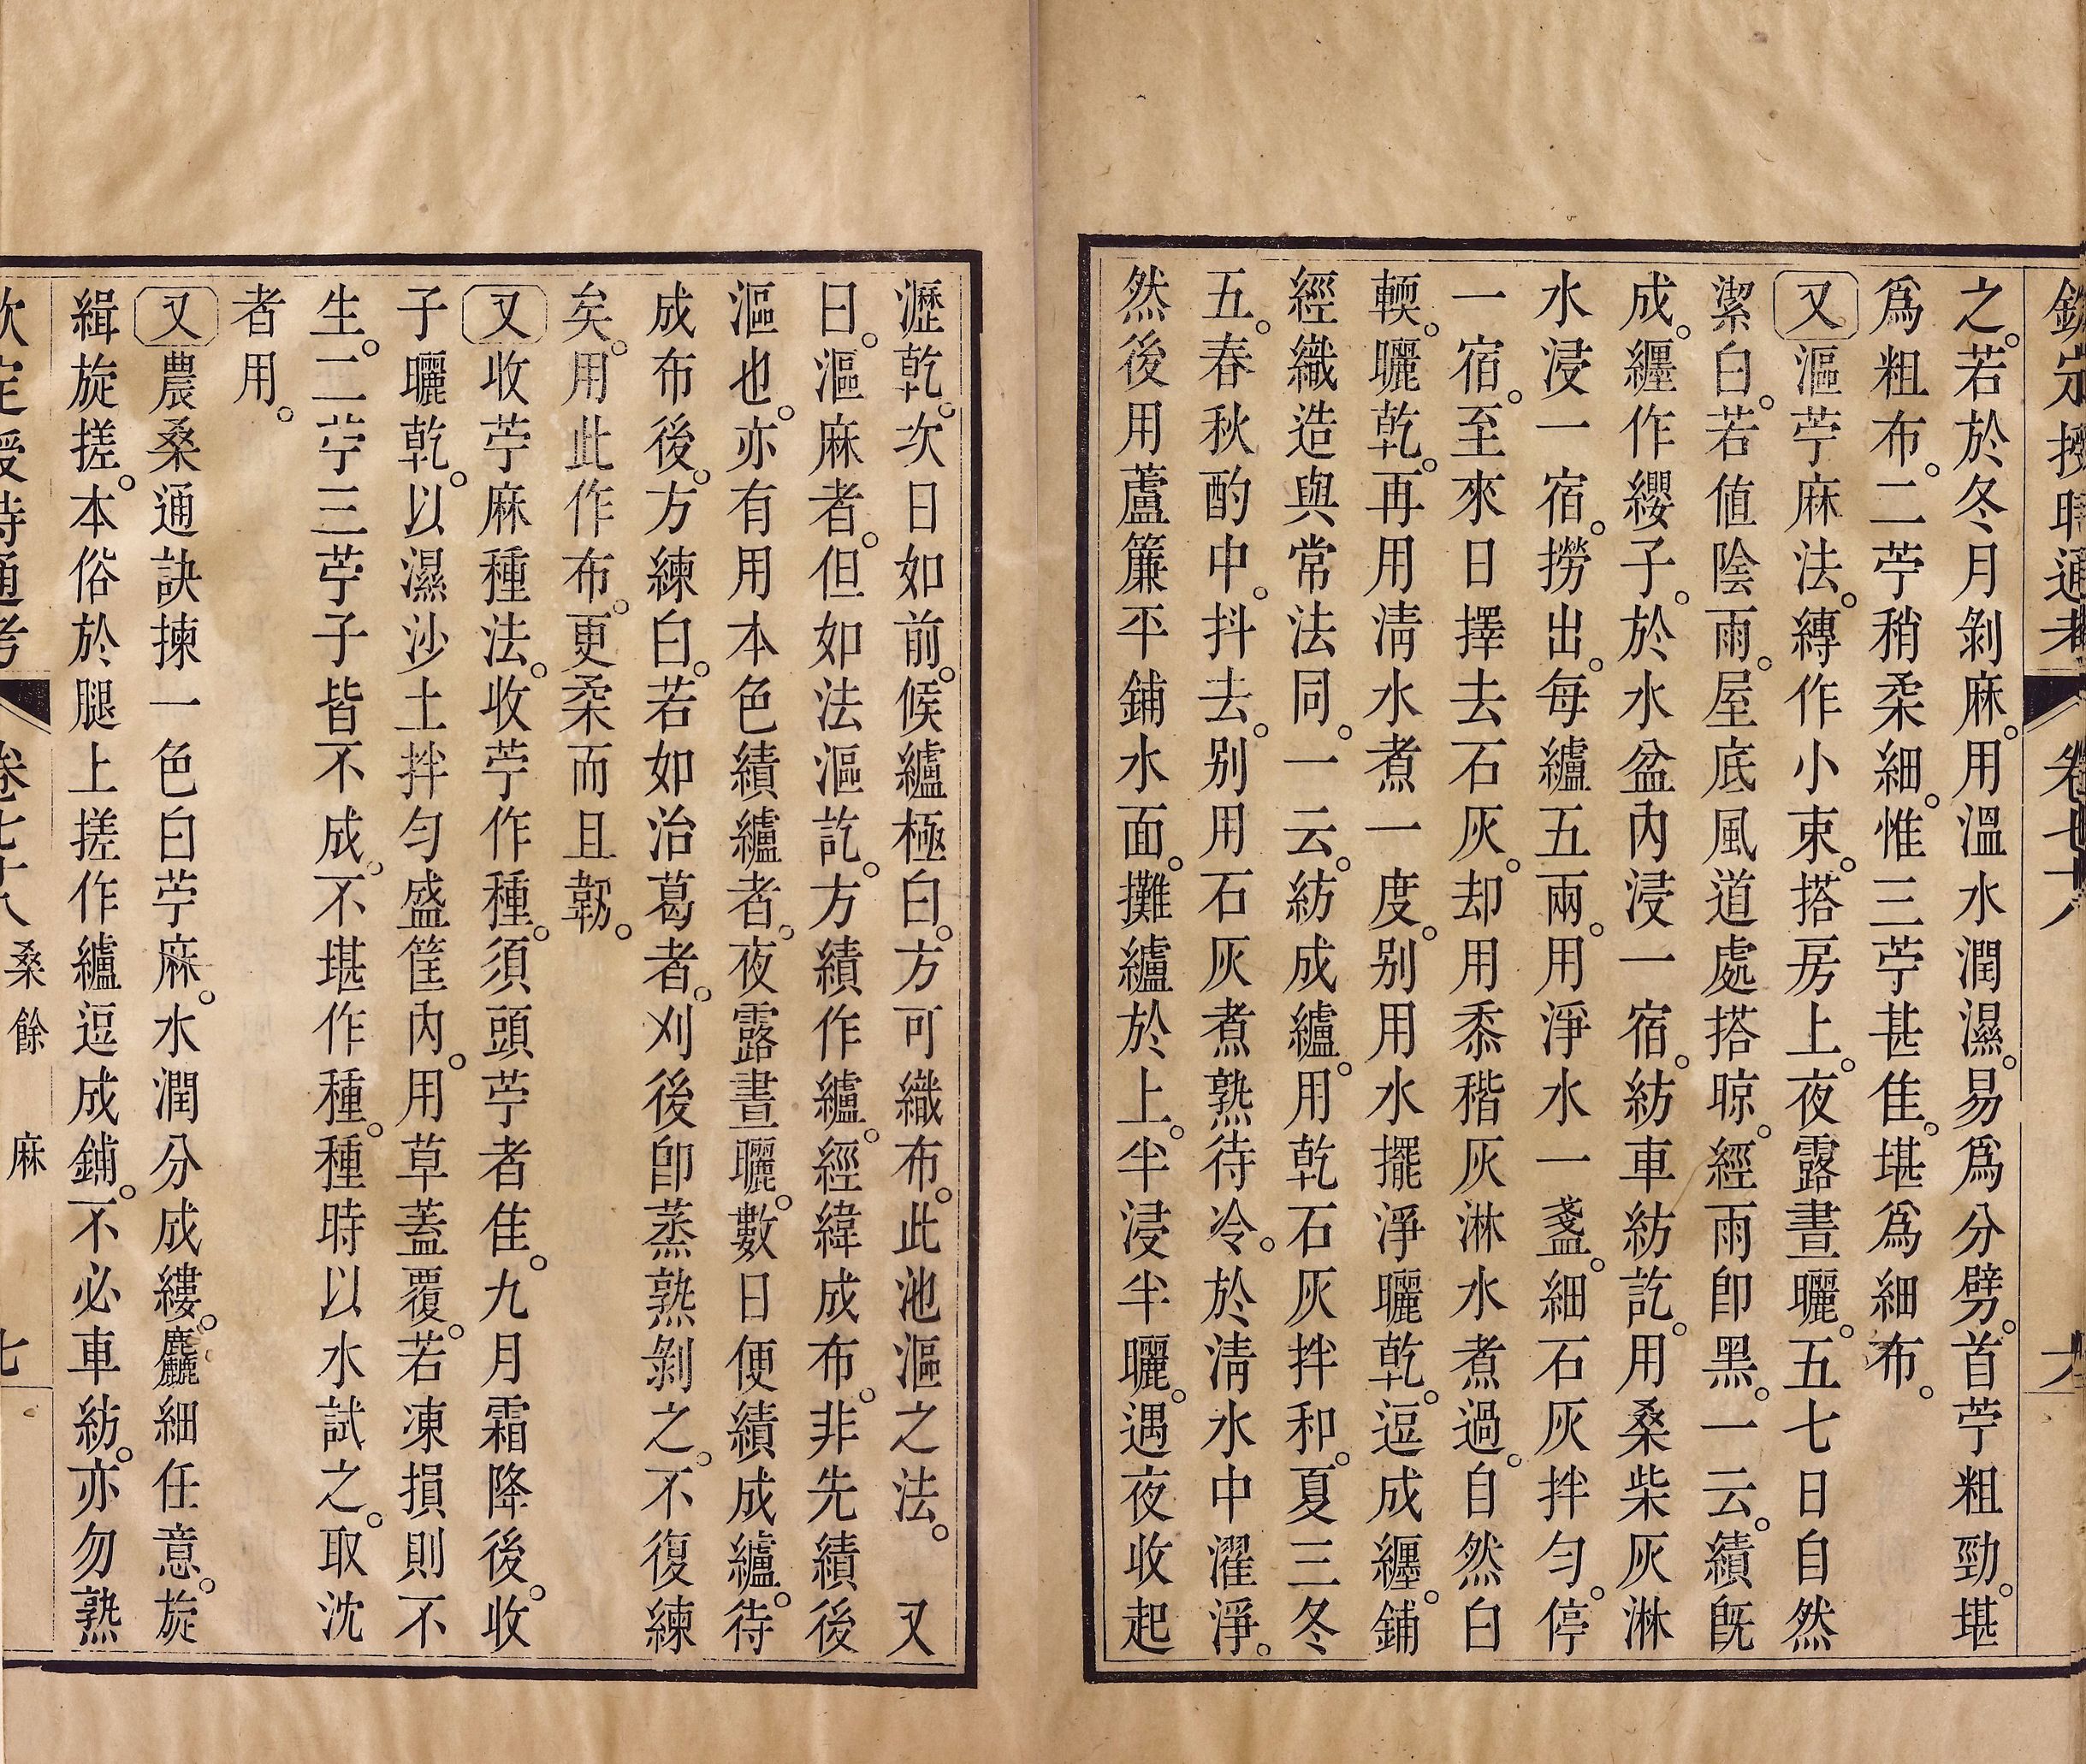 欽定授時通考 卷七十八
之。若於冬月剝麻。用溫水潤濕。易爲分劈。首苧粗勁。堪
爲粗布。二苧稍柔細。惟三苧甚佳。堪爲細布。
又漚苧麻法。縛作小束。搭房上。夜露晝曬。五七日自然
潔白。若値陰雨。屋底風道處搭晾。經雨卽黑。一云。績旣
成。纏作纓子。於水盆內浸一宿。紡車紡訖。用桑柴灰淋
水浸一宿。撈出。每纑五兩。用淨水一盞。細石灰拌勻。停
一宿。至來日擇去石灰。却用黍稭灰淋水煮過。自然白
輭。曬乾。再用淸水煮一度。别用水擺淨曬乾。逗成纏。鋪
經織造與常法同。一云。紡成纑。用乾石灰拌和。夏三冬
五。春秋酌中。抖去。别用石灰煮熟待冷。於淸水中濯淨。
然後用蘆簾平鋪水面。攤纑於上。半浸半曬。遇夜收起
瀝乾。次日如前。候纑極白。方可織布。此池漚之法。 又
曰。漚麻者。但如法漚訖。方績作纑。經緯成布。非先績後
漚也。亦有用本色績纑者。夜露晝曬。數日便績成纑。待
成布後。方練白。若如治葛者。刈後卽蒸熟剝之。不復練
矣。用此作布。更柔而且韌。
又收苧麻種法。收苧作種。須頭苧者佳。九月霜降後。收
子曬乾。以濕沙土拌勻盛筐內。用草蓋覆。若凍損則不
生。二苧三苧子皆不成。不堪作種。種時以水試之。取沈
者用。
又農桑通訣揀一色白苧麻。水潤分成縷。麤細任意。旋
緝旋搓。本俗於腿上搓作纑逗成鋪。不必車紡。亦勿熟
欽定授時通考 卷七十八 桑餘 麻 七